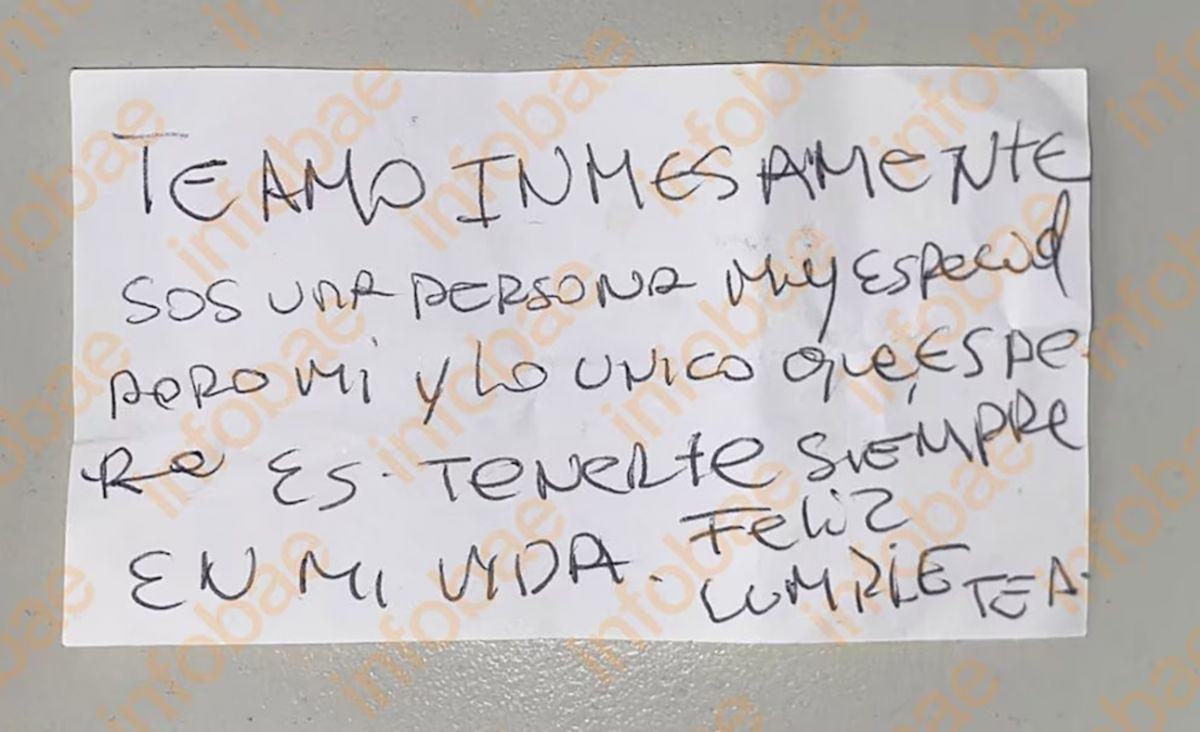 TE AMO INMESAMENTE
SOS UNA PERSONA MUY ESPECIAL
PERO MI Y LO UNICO QUE ESPE
RO ES TENERTE SIEMPRE
EN MI VIDA. FELIZ
CUMPLE TE A.
infobae